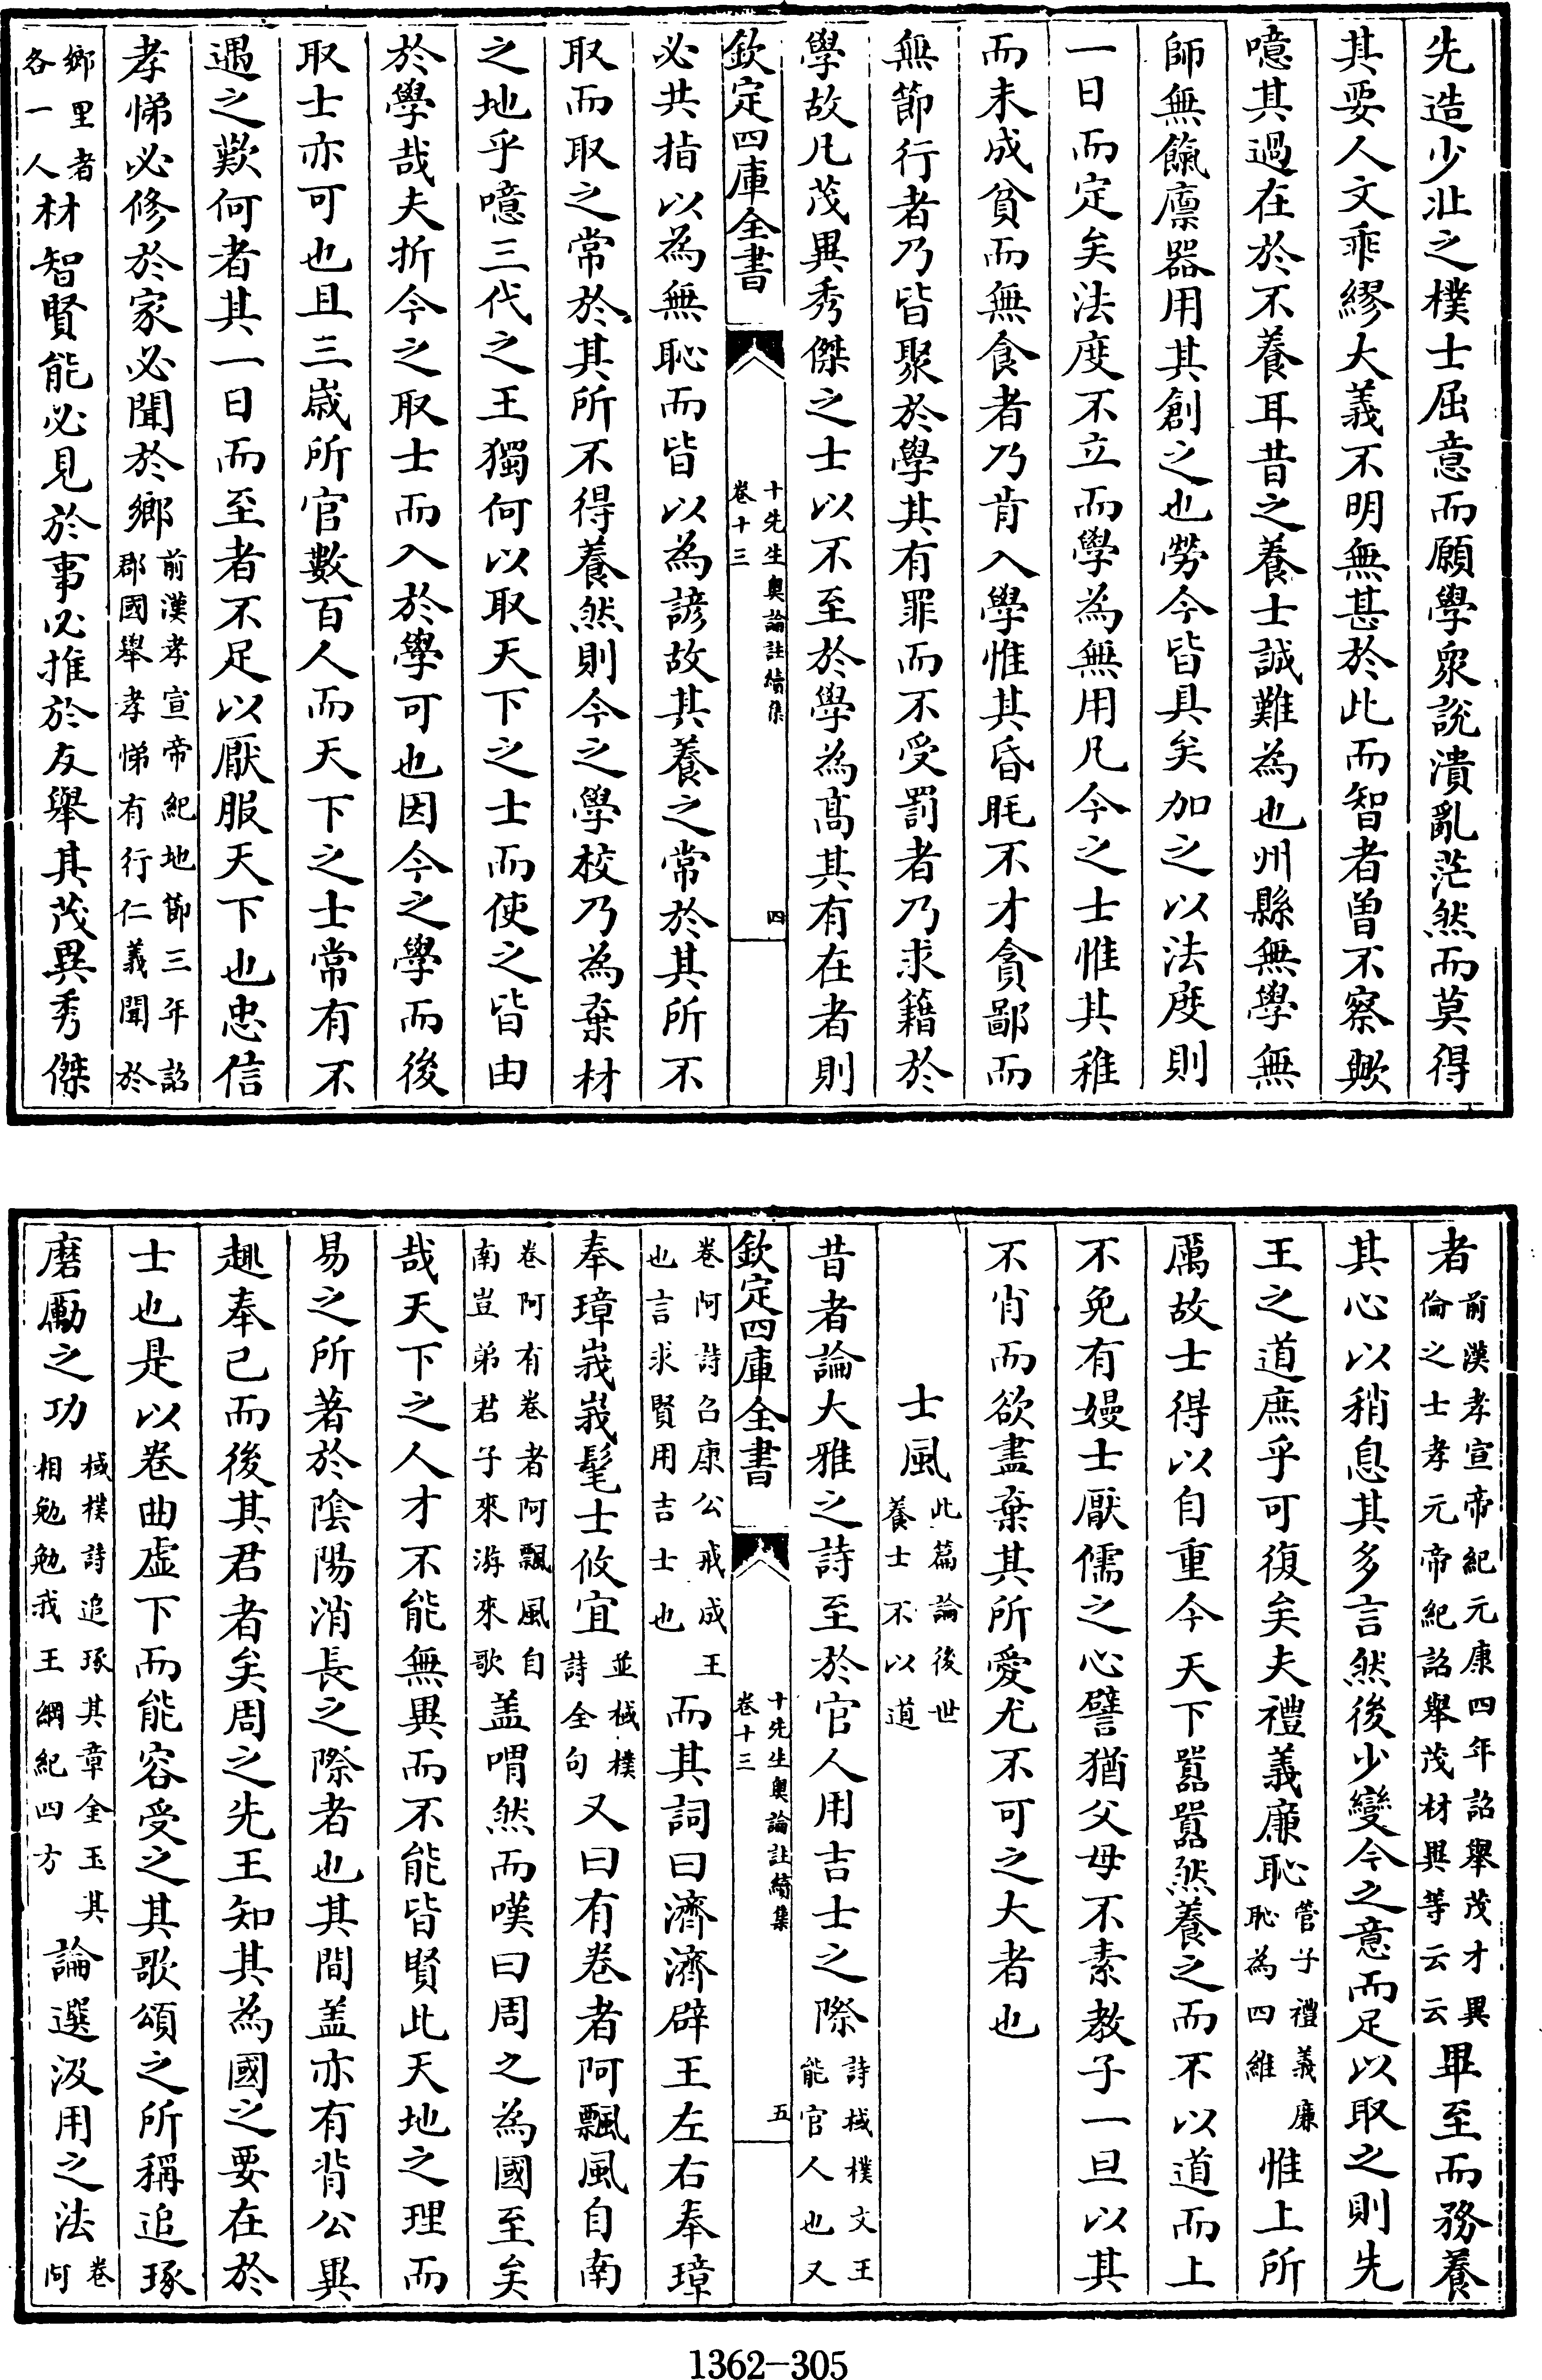 先造少壯之樸士屈意而願學衆說潰亂茫然而莫得
其要人文乖繆大義不明無甚於此而智者曽不察歟
噫其過在於不養耳昔之養士誠難為也州縣無學無
師無餼廩器用其創之也勞今皆具矣加之以法度則
一日而定矣法度不立而學為無用凡今之士惟其稚
而未成貧而無食者乃肯入學惟其昏眊不才貪鄙而
無節行者乃皆聚於學其有罪而不受罰者乃求籍於
學故凡茂異秀傑之士以不至於學為髙其有在者則
欽定四庫全書
十先生奥論註續集
卷十三
四
必共指以為無恥而皆以為諺故其養之常於其所不
取而取之常於其所不得養然則今之學校乃為棄材
之地乎噫三代之王獨何以取天下之士而使之皆由
於學哉夫折今之取士而入於學可也因今之學而後
取士亦可也且三嵗所官數百人而天下之士常有不
遇之歎何者其一日而至者不足以厭服天下也忠信
孝悌必修於家必聞於鄉前漢孝宣帝紀地節三年詔
郡國舉孝悌有行仁義聞於
鄉里者
各一人材智賢能必見於事必推於友舉其茂異秀傑
者前漢孝宣帝紀元康四年詔舉茂才異
倫之士孝元帝紀詔舉茂材異等云云畢至而務養
其心以稍息其多言然後少變今之意而足以取之則先
王之道庶乎可復矣夫禮義廉恥管子禮義廉
恥為四維惟上所
厲故士得以自重今天下嚚嚚然養之而不以道而上
不免有嫚士厭儒之心譬猶父母不素教子一旦以其
不肖而欲盡棄其所愛尤不可之大者也
士風此篇論後世
養士不以道
昔者論大雅之詩至於官人用吉士之際詩棫樸文王
能官人也又
欽定四庫全書
十先生奥論註續集
卷十三
五
卷阿詩召康公戒成王
也言求賢用吉士也而其詞曰濟濟辟王左右奉璋
奉璋峩峩髦士攸宜並棫樸
詩全句又曰有卷者阿飄風自南
卷阿有卷者阿飄風自
南豈弟君子來游來歌盖喟然而嘆曰周之為國至矣
哉天下之人才不能無異而不能皆賢此天地之理而
易之所著於陰陽消長之際者也其間盖亦有背公異
趣奉己而後其君者矣周之先王知其為國之要在於
士也是以卷曲虚下而能容受之其歌頌之所稱追琢
磨勵之功棫樸詩追琢其章金玉其
相勉勉我王綱紀四方論選汲用之法卷
阿
1362-305